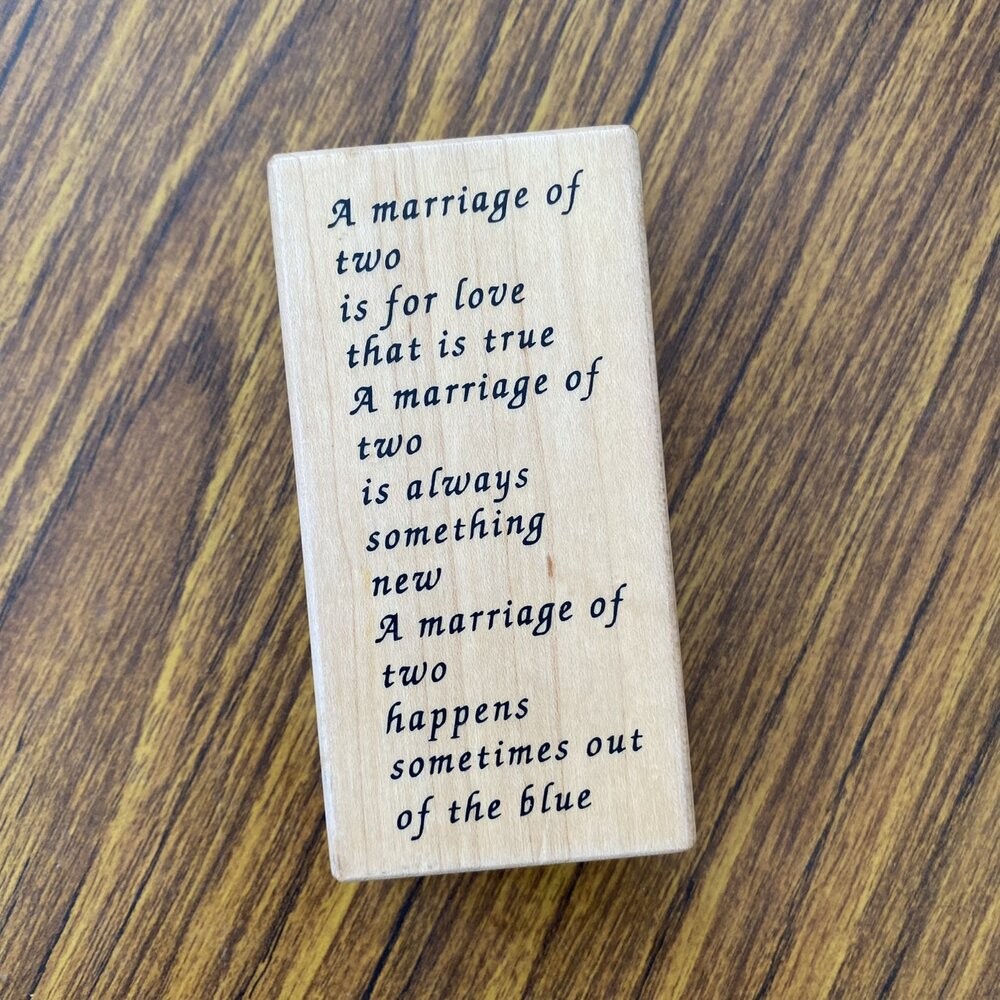 A marriage of
two
is for love
that is true
A marriage of
two
is always
something
new
A marriage of
two
happens
sometimes out
of the blue